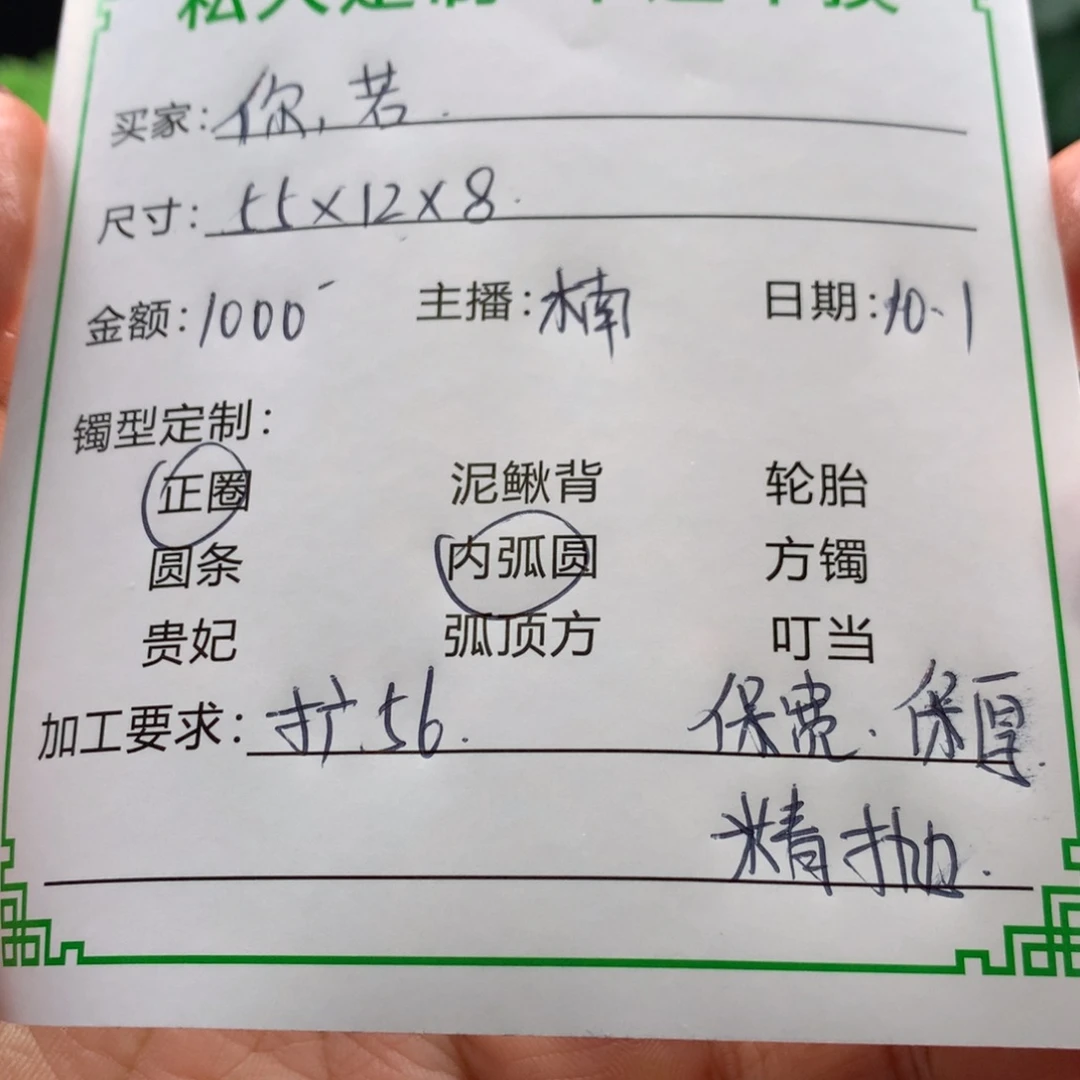 买家:你,若.
尺寸:55×12×8.
金额:1000- 主播:楠 日期:10.1
镯型定制:
正圈 泥鳅背 轮胎
圆条 内弧圆 方镯
贵妃 弧顶方 叮当
加工要求:扩56. 保宽.保厚.
精抛.